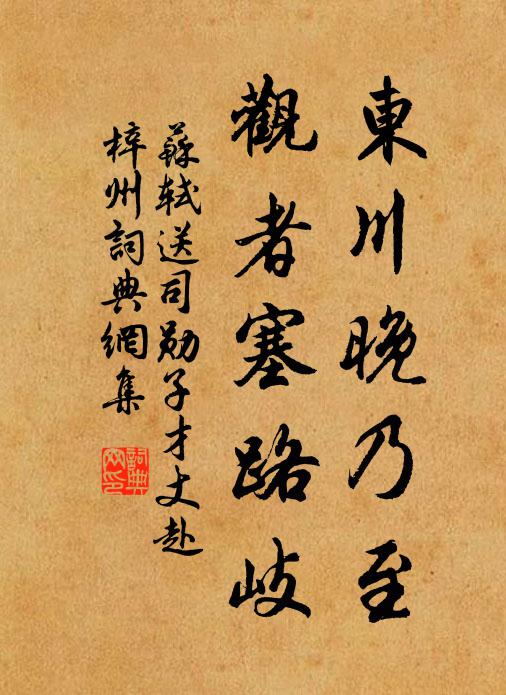 東川晚乃至
觀者塞路歧
蘇軾送司勛子才丈赴
梓州詞典網集
詞典網印